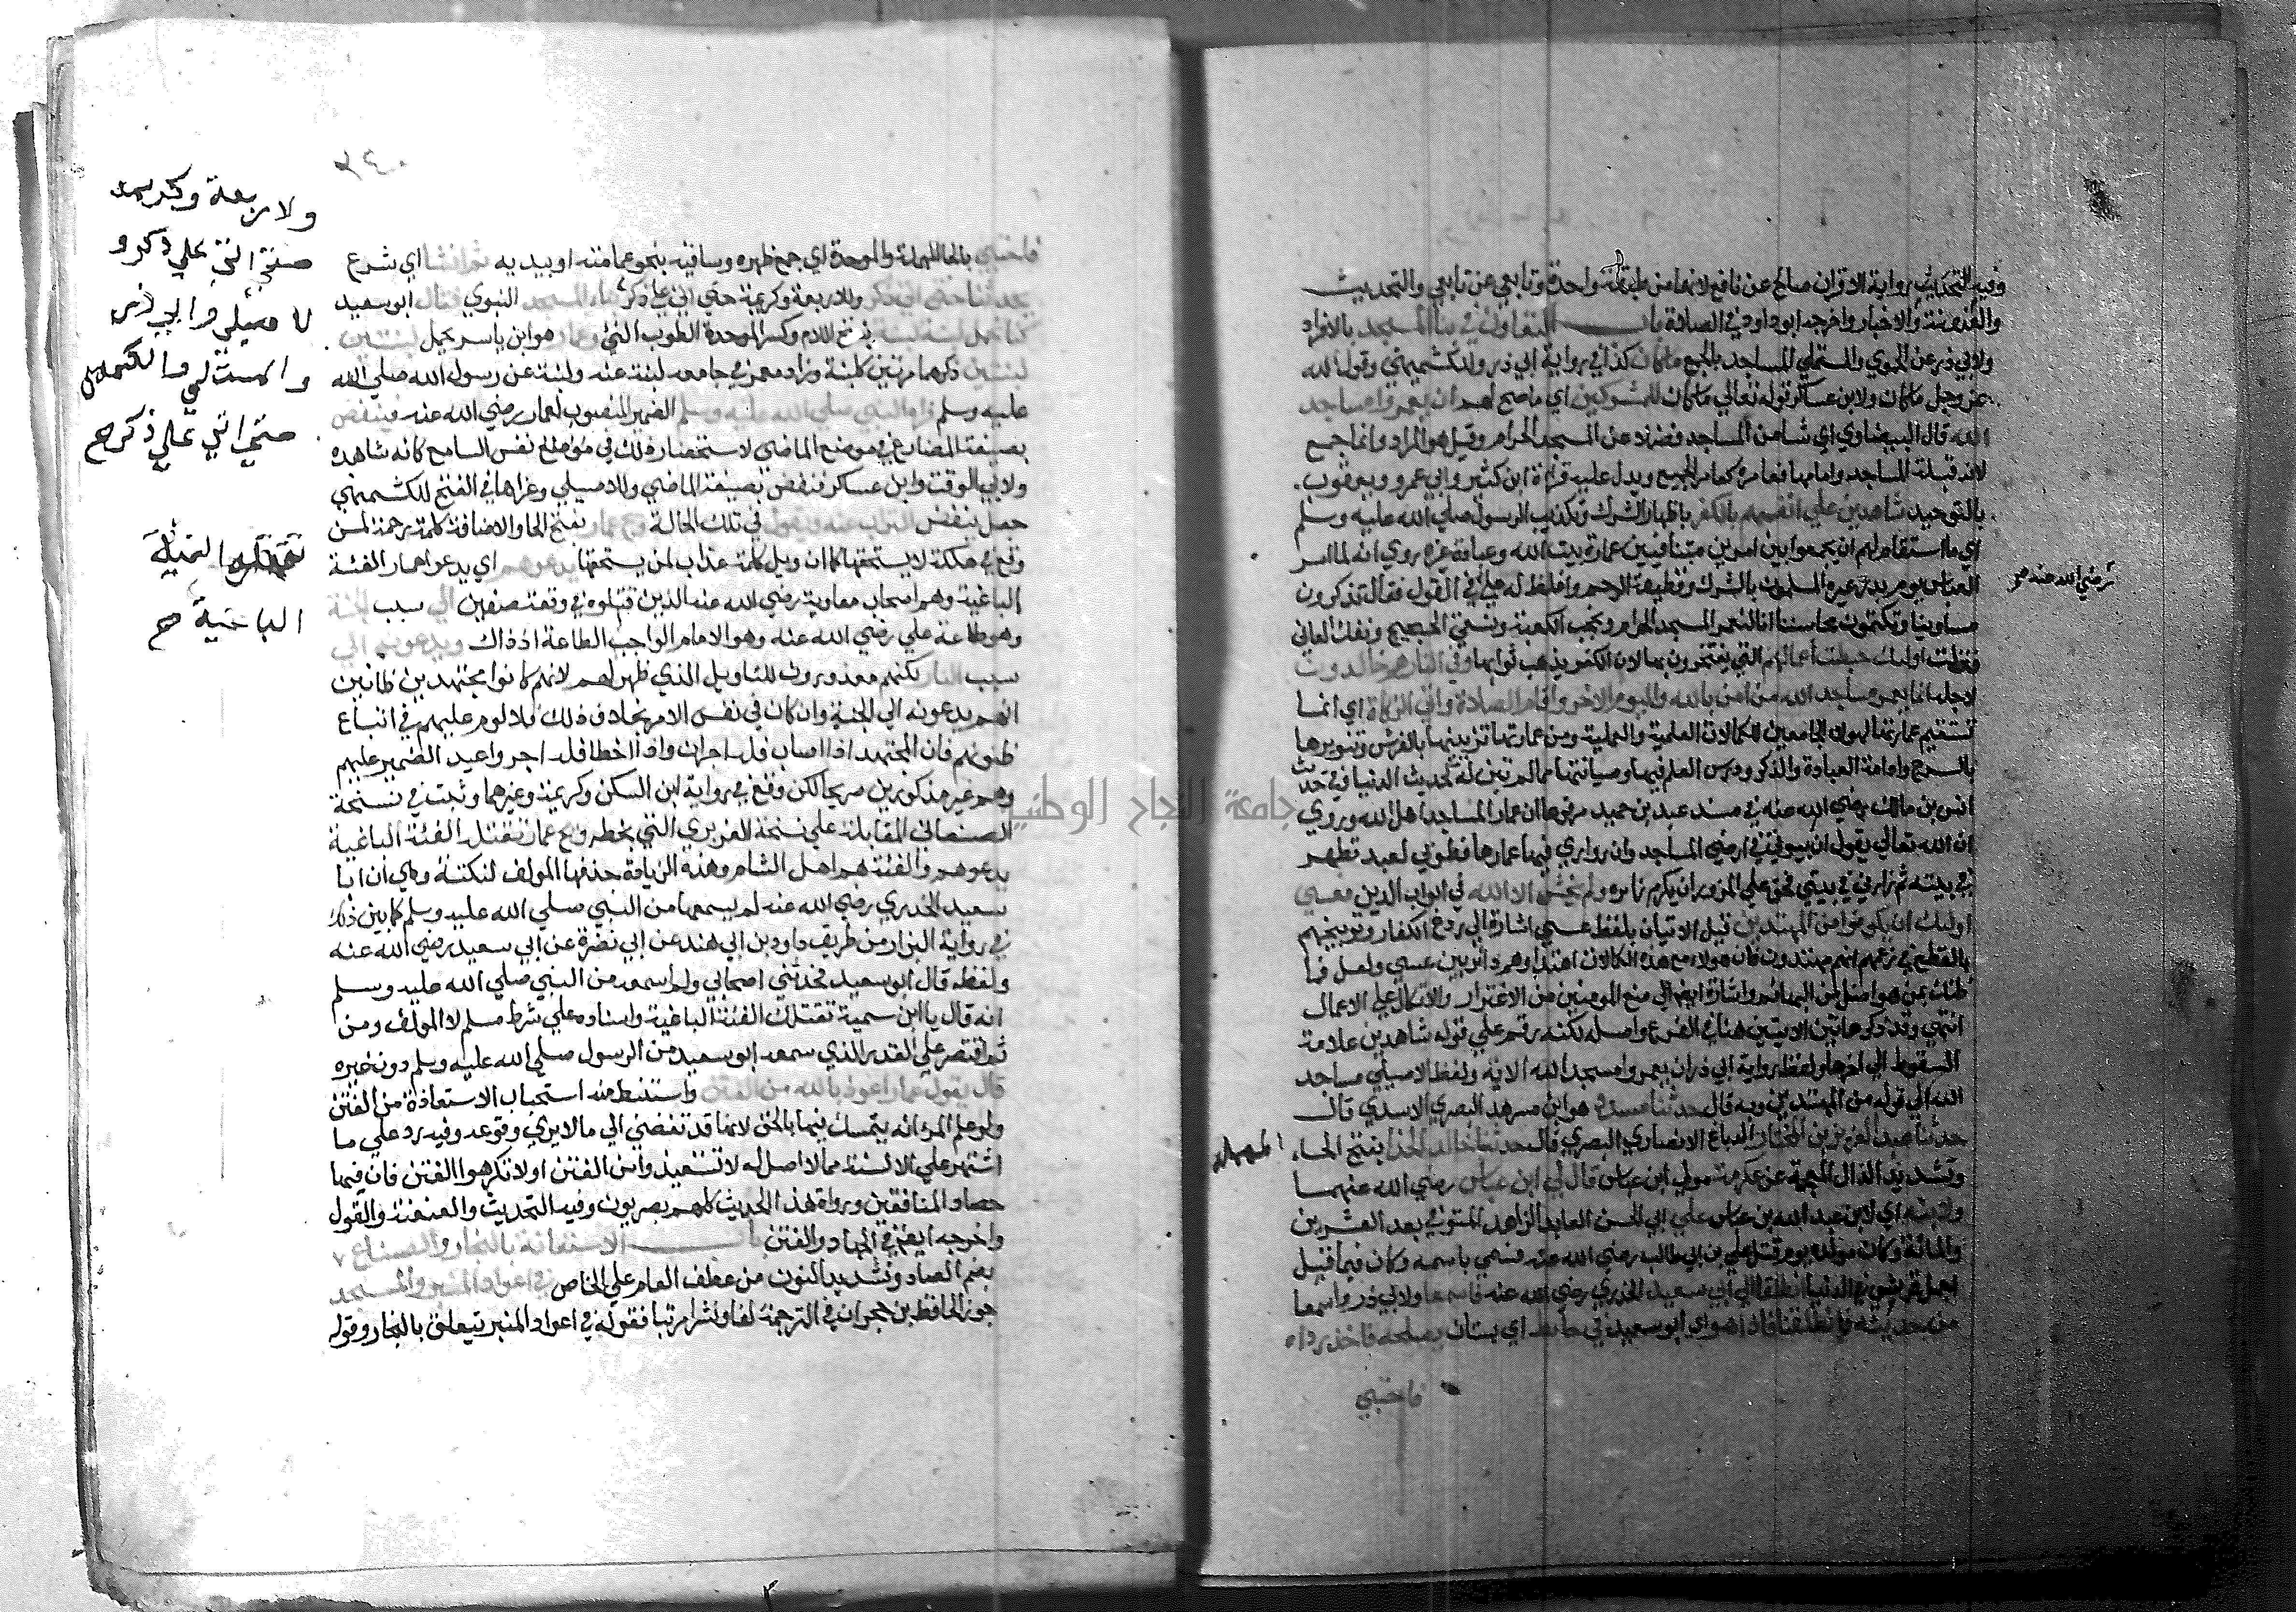 وفيه التحديث رواية الاقران صالح عن نافع لانهما من طبقة واحدة وتابعي عن تابعي والتحديث
والعنعنة والاخبار واخرجه ابو داود في الصلاة باب التعاون في بنا المسجد بالافراد
ولابي ذر عن الحموي والمستملي المساجد بالجمع ما كان كذا في رواية ابي ذر وللكشميهني وقول الله
عز وجل ما كان ولابن عساكر قوله تعالي ما كان للمشركين اي ما صح لهم ان يعمروا مساجد
الله قال البيضاوي اي شيا من المساجد فضلا عن المسجد الحرام وقيل هو المراد وانما جمع
لانه قبلة المساجد وامامها فعامره كعامر الجميع ويدل عليه قراة ابن كثير وابي عمرو ويعقوب
بالتوحيد شاهدين علي انفسهم بالكفر باظهار الشرك وتكذيب الرسول صلي الله عليه وسلم
اي ما استقام لهم ان يجمعوا بين امرين متنافيين عمارة بيت الله وعبادة غيره روي انه لما اسر
العباس يوم بدر عيره المسلمون بالشرك وقطيعة الرحم واغلظ له علي في القول فقال تذكرون
رضي الله عنه
مساوينا وتكتمون محاسننا انا لنعمر المسجد الحرام ونحجب الكعبة ونسقي الحجيج ونفك العاني
فنزلت اوليك حبطت اعمالهم التي يفتخرون بها لان الكفر يذهب ثوابها وفي النار هم خالدون
لاجله انما يعمر مساجد الله من امن بالله واليوم الاخر واقام الصلاة واتي الزكاة اي انما
تستقيم عمارتها لهولا الجامعين للكمالات العلمية والعملية ومن عمارتها تزيينها بالفرش وتنويرها
بالسرج وادامة العبادة والذكر ودرس العلم فيها وصيانتها مما لم تبن له كحديث الدنيا وفي حديث
انس بن مالك رضي الله عنه في مسند عبد بن حميد مرفوعا ان عمار المساجد اهل الله وروي
ان الله تعالي يقول ان بيوتي في ارضي المساجد وان زواري فيها عمارها فطوبي لعبد تطهر
في بيته ثم زارني في بيتي فحق علي المزور ان يكرم زايره ولم يخش الا الله في ابواب الدين فعسي
اوليك ان يكونوا من المهتدين قيل الاتيان بلفظ عسي اشارة الي ردع الكفار وتوبيخهم
بالقطع في زعمهم انهم مهتدون فان هولاء مع هذه الكمالات اهتداوهم دائر بين عسي ولعل فما
ظنك بمن هو اضل من البهائم واشارة ايضا الي منع المومنين من الاغترار والاتكال علي الاعمال
انتهي وقد ذكر هاتين الايتين هنا في الفرع واصله لكنه رقم علي قوله شاهدين علامة
السقوط الي اخرها ولفظ رواية ابي ذر ان يعمروا مسجد الله الاية ولفظ الاصيلي مساجد
الله الي قوله من المهتدين وبه قال حدثنا مسدد هو ابن مسرهد البصري الاسدي قال
حدثنا عبد العزيز بن المختار الدباغ الانصاري البصري قال حدثنا خالد الحذا بفتح الحاء
المهملة
وتشديد الذال المعجمة عن عكرمة مولي ابن عباس قال لي ابن عباس رضي الله عنهما
ولابنه اي لابن عبد الله بن عباس علي ابي الحسن العابد الزاهد المتوفي بعد العشرين
والمائة وكان مولده يوم قتل علي بن ابي طالب رضي الله عنه فسمي باسمه وكان فيما قيل
اجمل قرشي في الدنيا انطلقا الي ابي سعيد الخدري رضي الله عنه فاسمعا ولابي ذر واسمعا
من حديثه فانطلقنا فاذا هو اي ابو سعيد في حائط اي بستان يصلحه فاخذ رداه
فاحتبي
٢٤٠
فاحتبي بالحا المهملة والموحدة اي جمع ظهره وساقيه بنحو عمامته او بيديه ثم انشا اي شرع
يحدثنا حتي اتي ذكر وللاربعة وكريمة حتي اتي علي ذكر بناء المسجد النبوي فقال ابو سعيد
كنا نحمل لبنة لبنة بفتح اللام وكسر الموحدة الطوب الني وعمار هو ابن ياسر يحمل لبنتين
لبنتين ذكرهما مرتين كلبنة وزاد معمر في جامعه لبنة عنه ولبنة عن رسول الله صلي الله
عليه وسلم فراه النبي صلي الله عليه وسلم الضمير المنصوب لعمار رضي الله عنه فينفض
بصيغة المضارع في موضع الماضي لاستحضار ذلك في نفس السامع كانه شاهده
ولابي الوقت وابن عساكر فنفض بصيغة الماضي وللاصيلي وعزاها في الفتح للكشميهني
جعل ينفض التراب عنه ويقول في تلك الحالة ويح عمار بفتح الحا والاضافة كلمة رحمة لمن
وقع في هلكة لا يستحقها كما ان ويل كلمة عذاب لمن يستحقها يدعوهم اي يدعو عمار الفئة
الباغية وهم اصحاب معاوية رضي الله عنه الذين قتلوه في وقعة صفين الي سبب الجنة
وهو طاعة علي رضي الله عنه وهو الامام الواجب الطاعة اذ ذاك ويدعونه الي
سبب النار لكنهم معذورون للتاويل الذي ظهر لهم لانهم كانوا مجتهدين ظانين
انهم يدعونه الي الجنة وان كان في نفس الامر بخلاف ذلك فلا لوم عليهم في اتباع
ظنونهم فان المجتهد اذا اصاب فله اجران واذا اخطا فله اجر واعيد الضمير عليهم
وهم غير مذكورين صريحا لكن وقع في رواية ابن السكن وكريمة وغيرهما وثبت في نسخة
الصغاني المقابلة علي نسخة الفربري التي بخطه ويح عمار تقتله الفئة الباغية
يدعوهم والفئة هم اهل الشام وهذه الزيادة حذفها المولف لنكتة وهي ان ابا
سعيد الخدري رضي الله عنه لم يسمعها من النبي صلي الله عليه وسلم كما بين ذلك
في رواية البزار من طريق داود بن ابي هند عن ابي نضرة عن ابي سعيد رضي الله عنه
ولفظه قال ابو سعيد فحدثني اصحابي ولم اسمعه من النبي صلي الله عليه وسلم
انه قال يا ابن سمية تقتلك الفئة الباغية واسناده علي شرط مسلم لا المولف ومن
ثم اقتصر علي القدر الذي سمعه ابو سعيد من الرسول صلي الله عليه وسلم دون غيره
قال يقول عمار اعوذ بالله من الفتن واستنبط منه استحباب الاستعاذة من الفتن
ولو علم المرء انه يتمسك فيها بالحق لانها قد تفضي الي ما لا يري وقوعه وفيه رد علي ما
اشتهر علي الالسنة مما لا اصل له لا تستعيذوا من الفتن او لا تكرهوا الفتن فان فيها
حصاد المنافقين ورواة هذا الحديث كلهم بصريون وفيه التحديث والعنعنة والقول
واخرجه ايضا في الجهاد والفتن باب الاستعانة بالنجار والصناع
بضم الصاد وتشديد النون من عطف العام علي الخاص في اعواد المنبر والمسجد
جوز الحافظ بن حجر ان في الترجمة لفا ونشرا مرتبا فقوله في اعواد المنبر يتعلق بالنجار وقوله
ولاربعة وكريمة
حتي اتي علي ذكر و
لاصيلي وابي ذر
والمستملي والكشميهني
حتي اتي علي ذكر صح
تقتله الفئة
الباغية صح
جامعة النجاح الوطنية